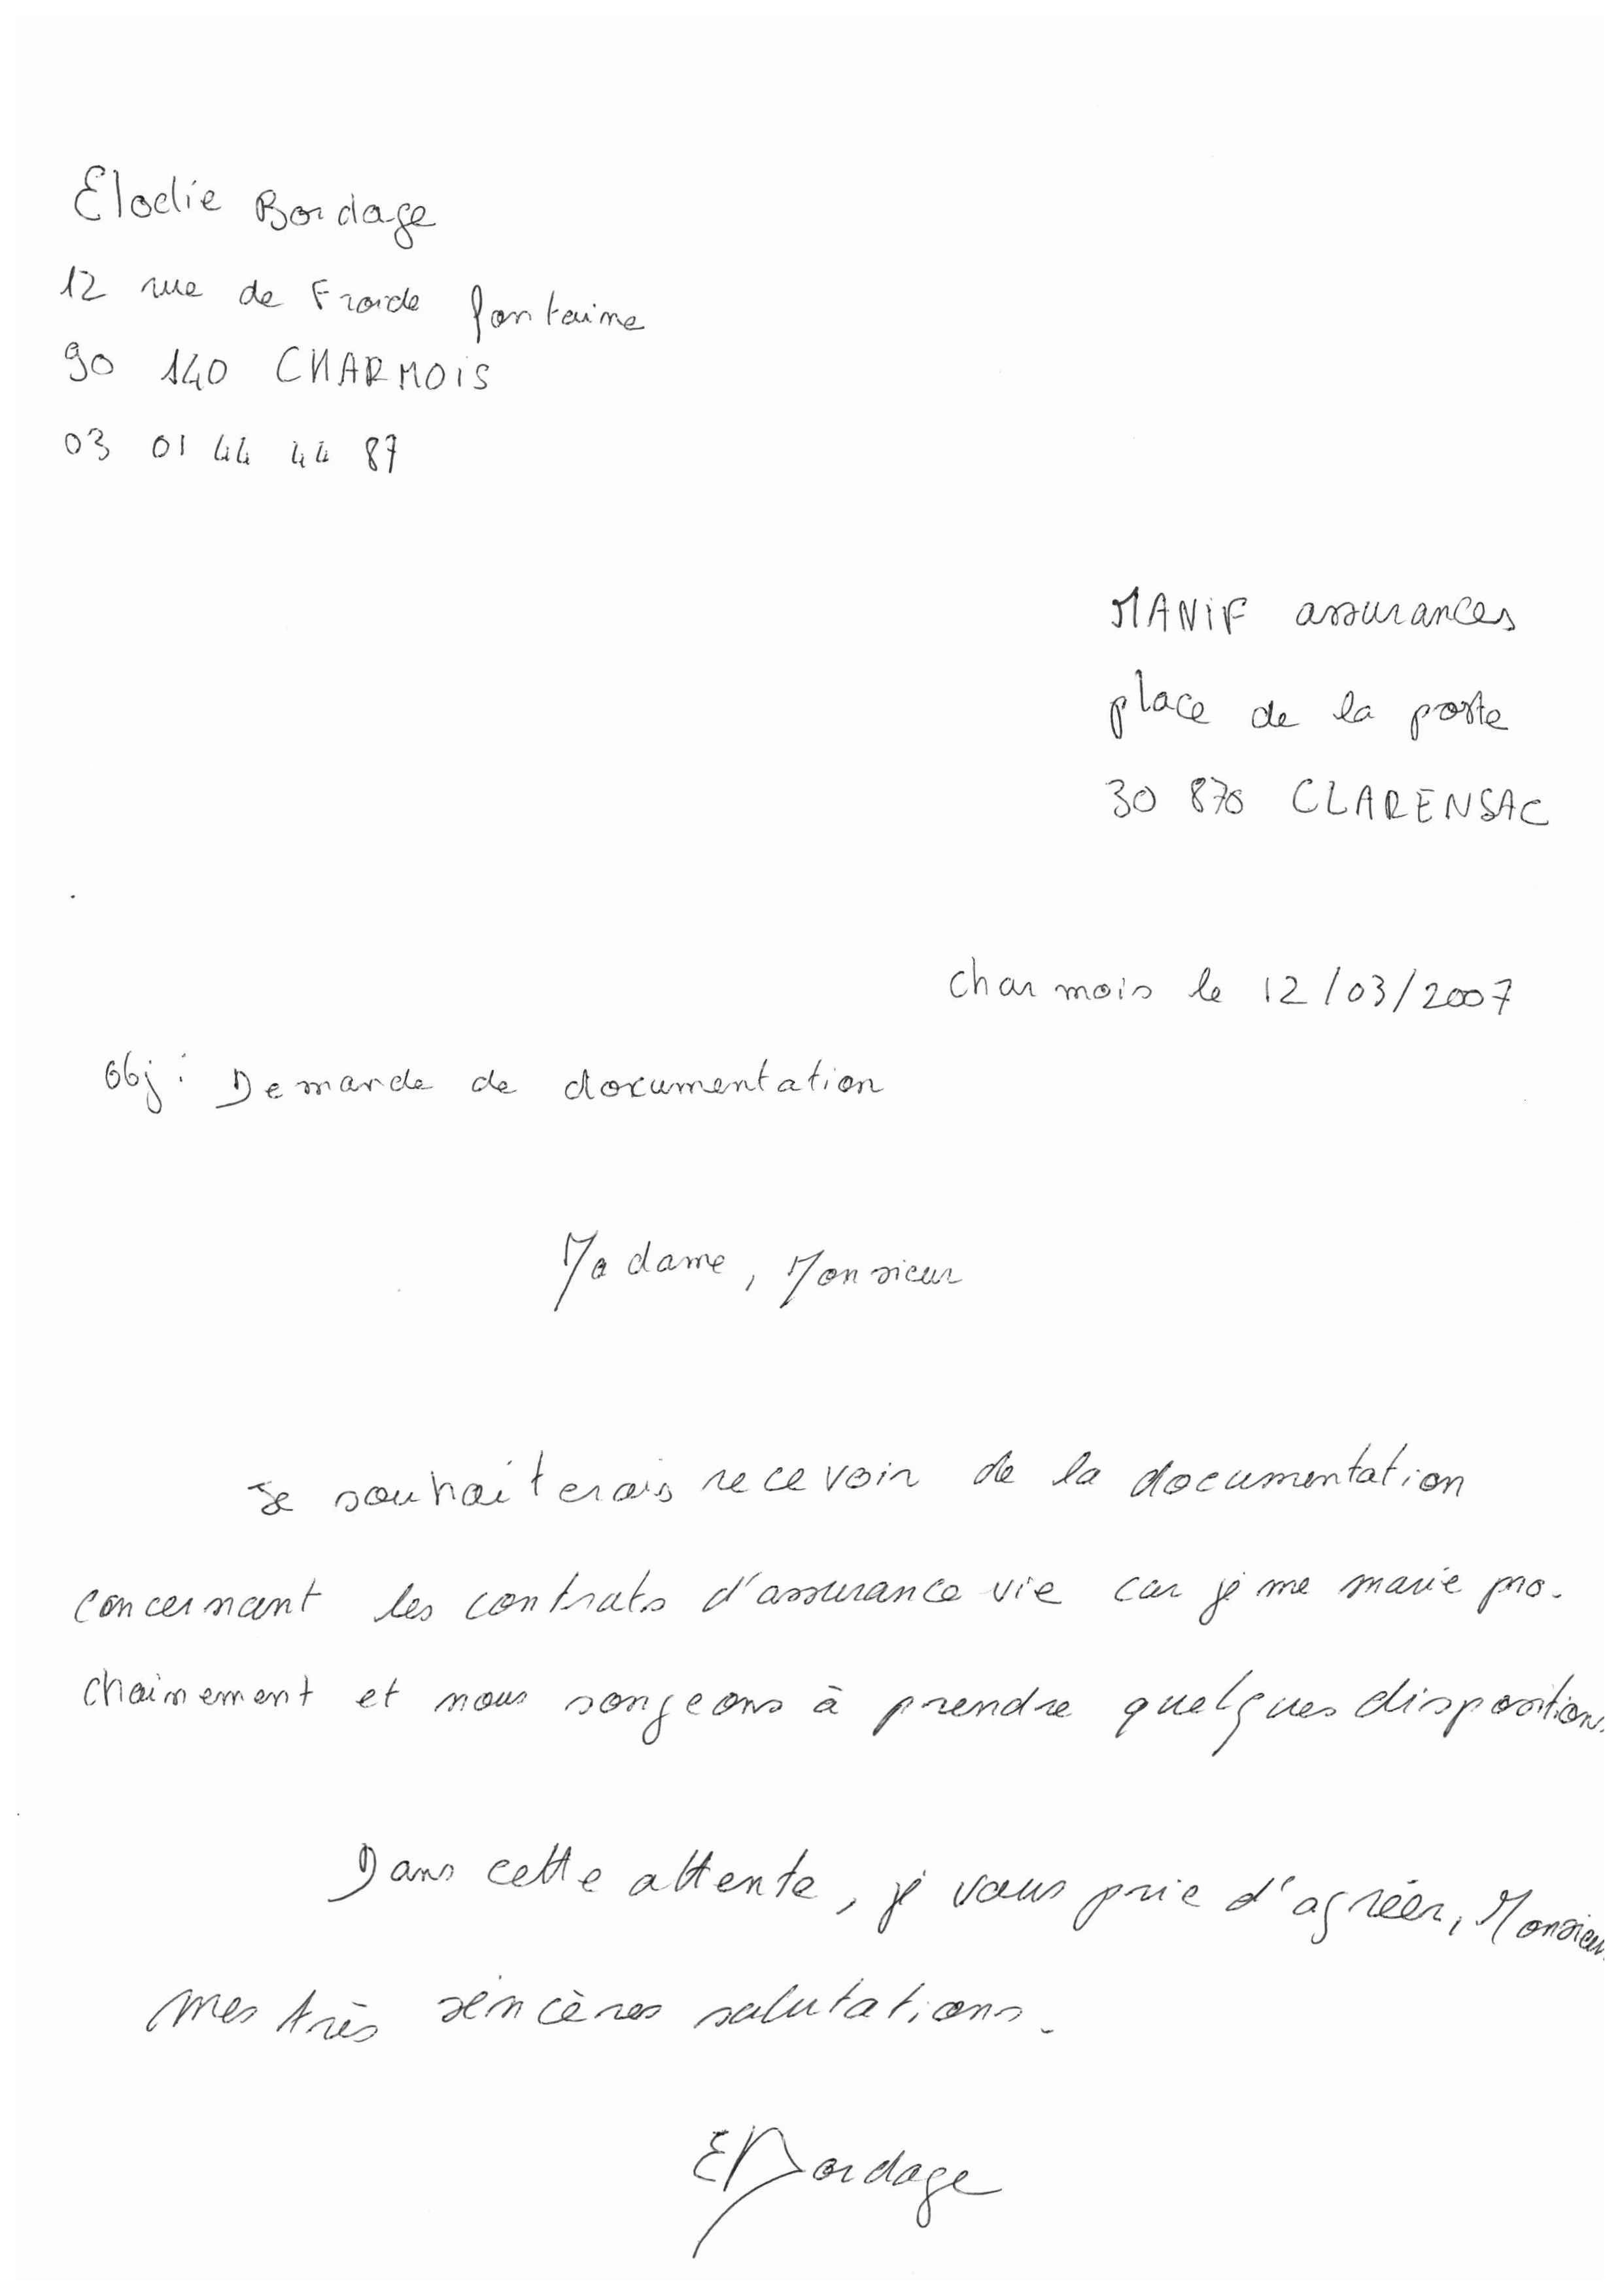 Elodie Bordage
12 rue de Froide fontaine
90 140 CHARMOIS
03 01 44 44 87
MANIF assurances
place de la poste
30 870 CLARENSAC
Charmois le 12/03/2007
Obj : Demande de documentation
Madame, Monsieur
Je souhaiterais recevoir de la documentation
concernant les contrats d'assurance vie car je me marie pro-
chainement et nous songeons à prendre quelques dispositions.
Dans cette attente, je vous prie d'agréer, Monsieur
mes très sincères salutations.
EBordage